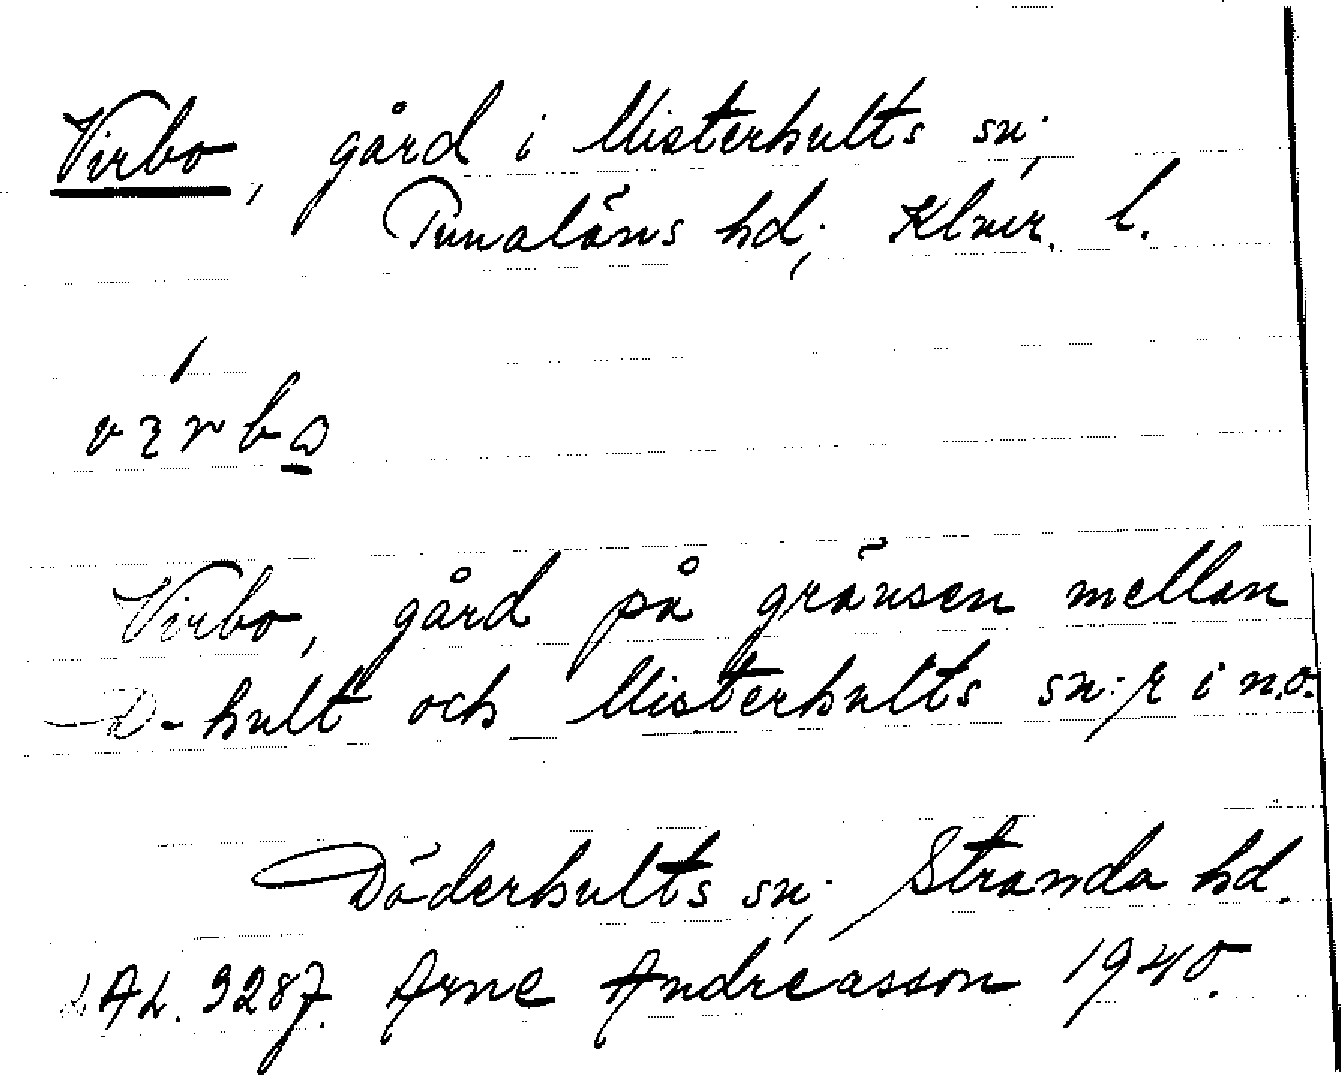 Virbo, gård i Misterhults sn;
Tunaläns hd; Klmr. l.
Virbo, gård på gränsen mellan
D-hult och Misterhults sn:r i no.
Döderhults sn; Stranda hd.
LAL. 9287. Arne Andréasson 1940.